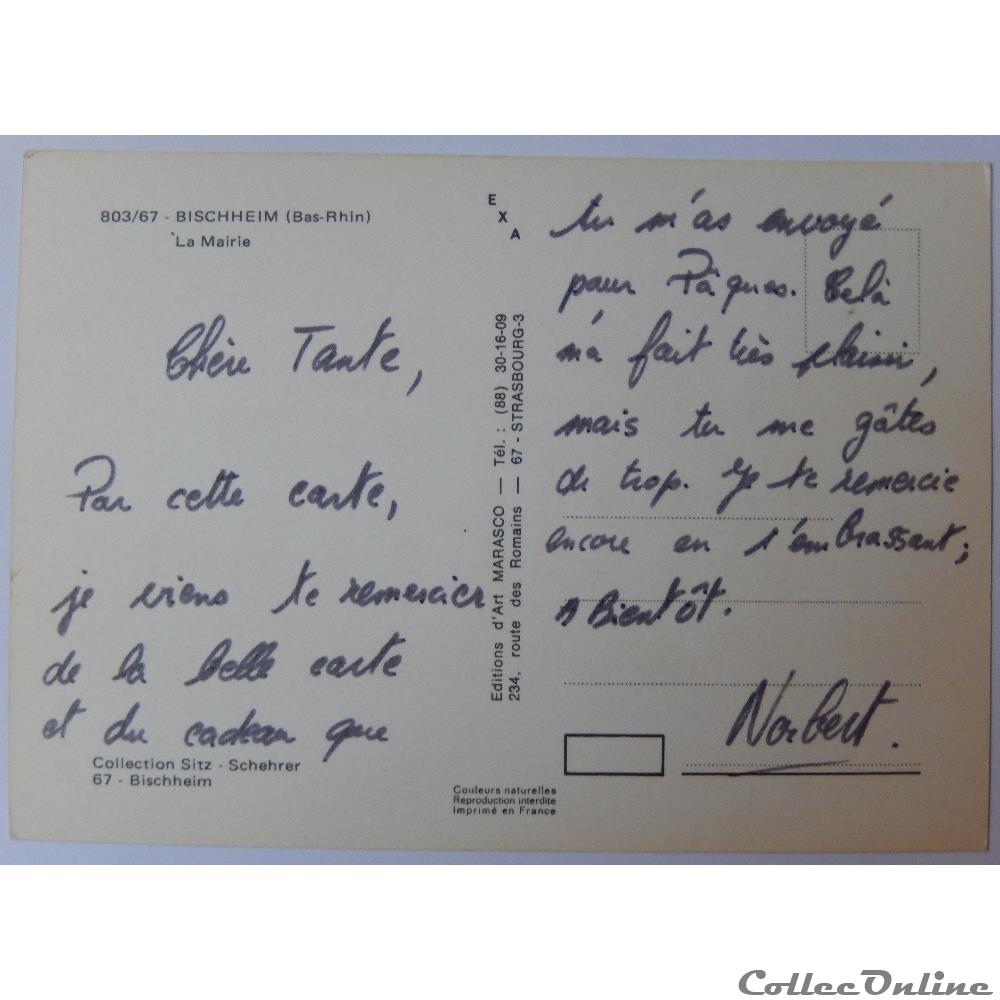 803/67 - BISCHHEIM (Bas-Rhin)
La Mairie
Chère Tante,
Par cette carte,
je viens te remercier
de la belle carte
et du cadeau que
Collection Sitz - Schehrer
67 - Bischheim
EXA
Editions d'Art MARASCO — Tél. : (88) 30-16-09
234, route des Romains — 67 - STRASBOURG-3
Couleurs naturelles
Reproduction interdite
Imprimé en France
tu m'as envoyé
pour Pâques. Celà
m'a fait très plaisir,
mais tu me gâtes
de trop. Je te remercie
encore en t'embrassant;
A Bientôt.
Norbert.
CollecOnline